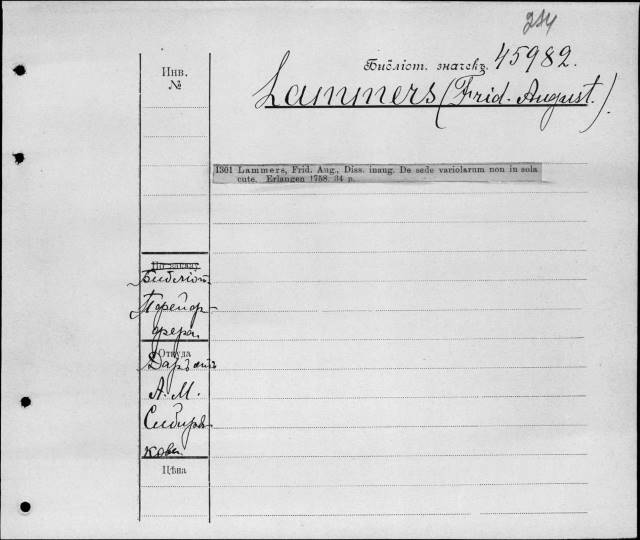 244
Библіот. значекъ. 45982.
Инв.
№
Lammers (Frid. August.)
1301 Lammers, Frid. Aug., Diss. inaug. De sede variolarum non in sola
cute. Erlangen 1758. 34 p.
Библіот.
Порейор-
фера.
Откуда
Даръ отъ
А. М.
Сибиря-
кова
Цѣна